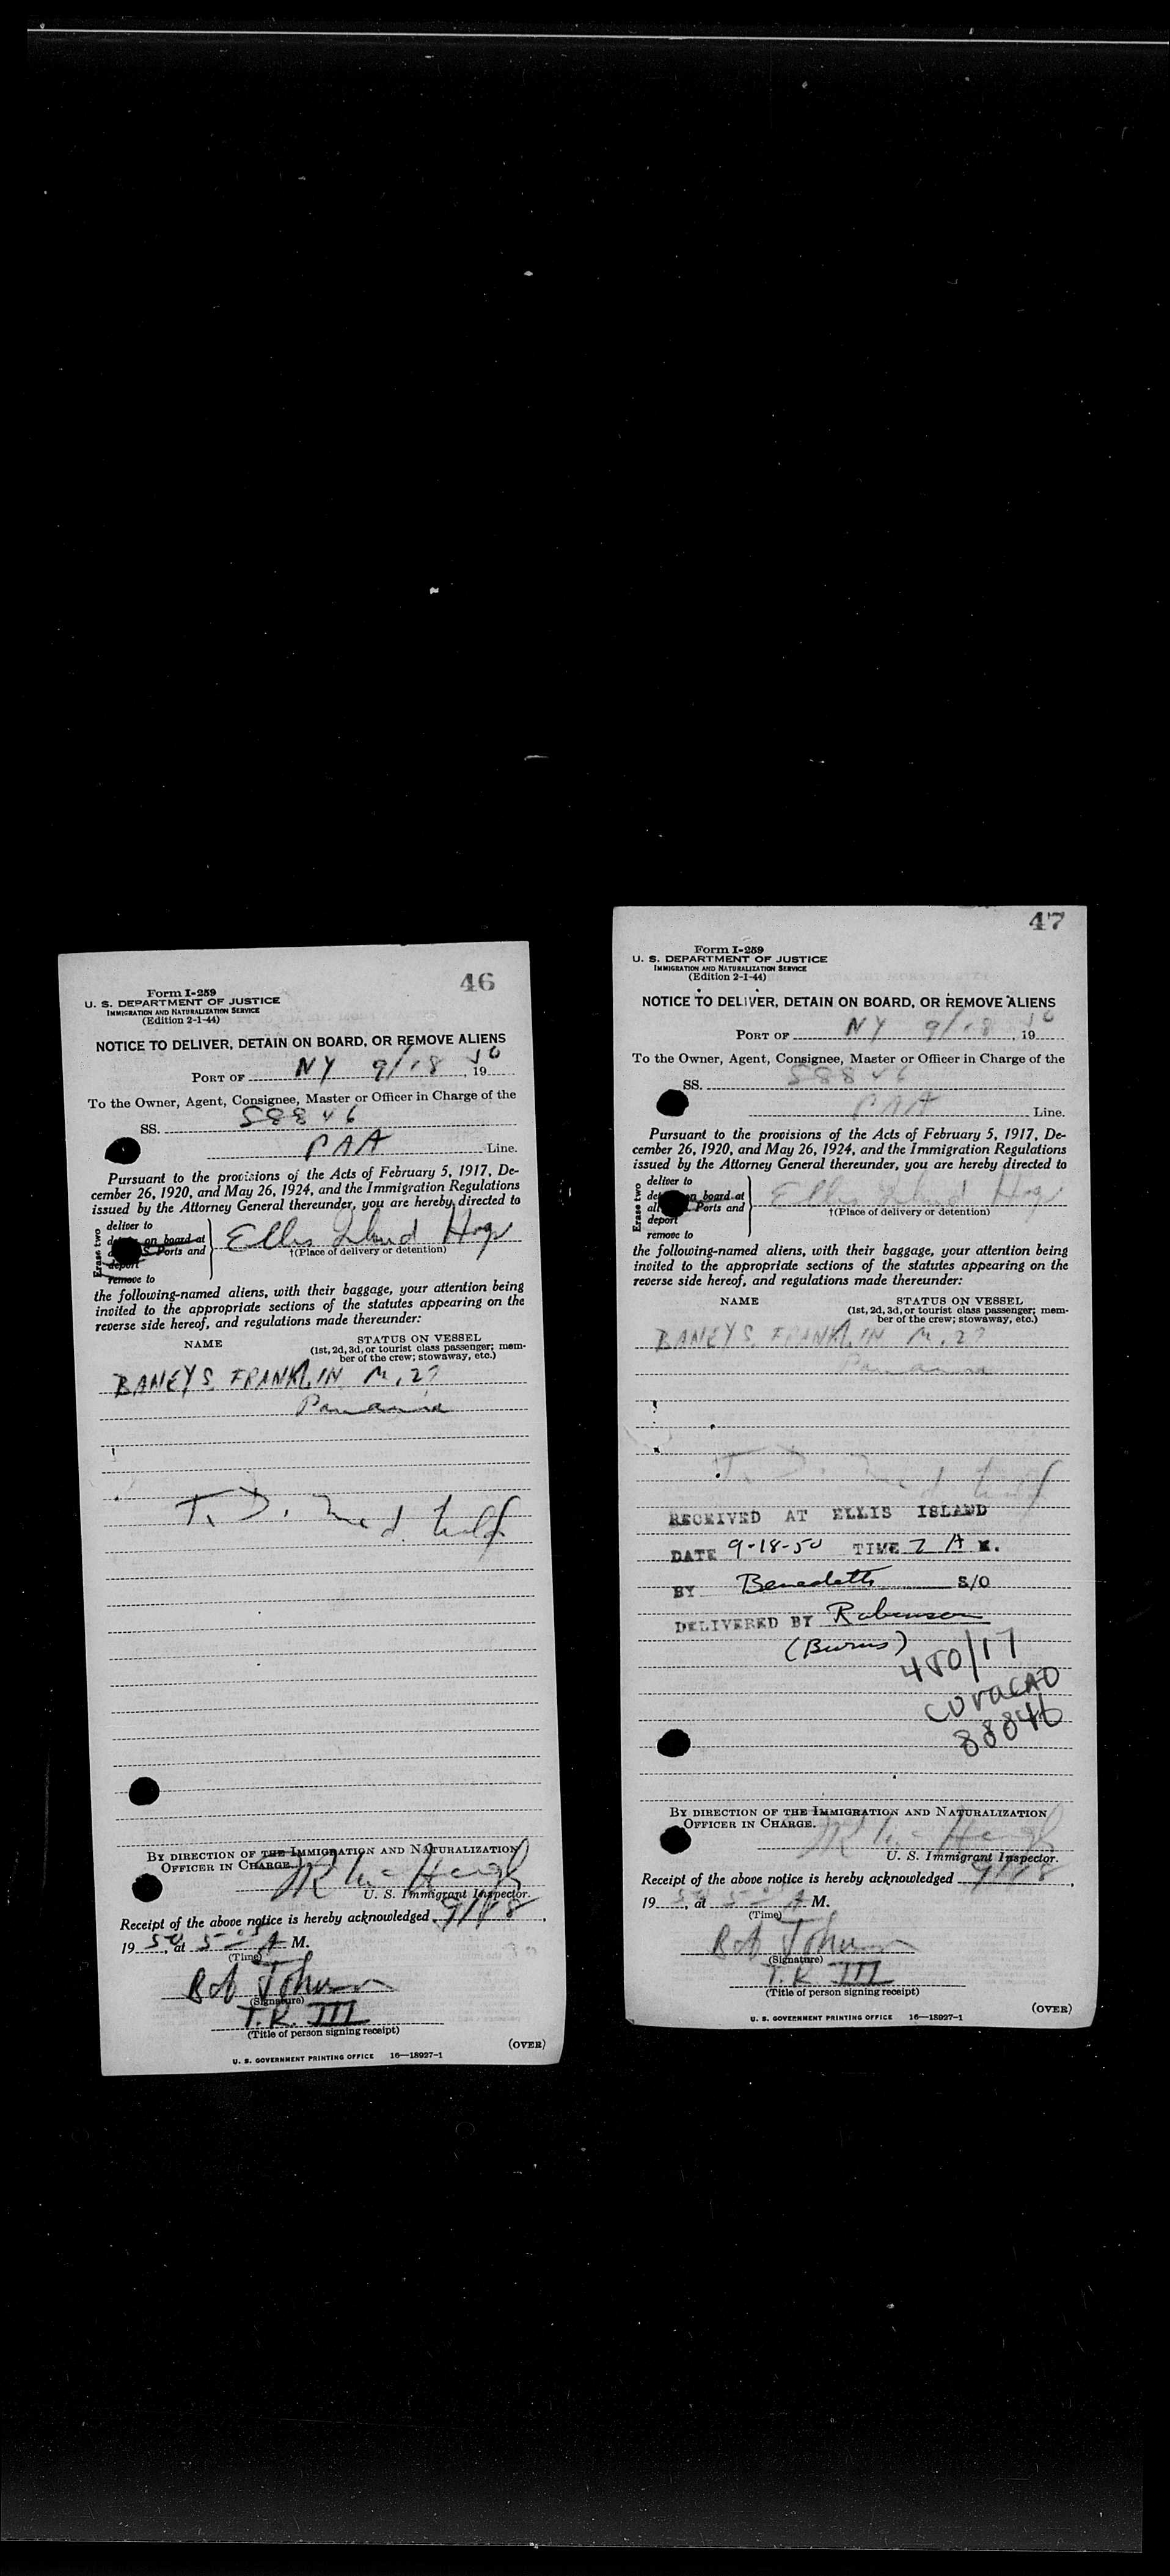 46
Form I-259
U. S. DEPARTMENT OF JUSTICE
IMMIGRATION AND NATURALIZATION SERVICE
(Edition 2-1-44)
NOTICE TO DELIVER, DETAIN ON BOARD, OR REMOVE ALIENS
PORT OF NY 9/18, 1950
To the Owner, Agent, Consignee, Master or Officer in Charge of the
SS. 88846
PAA Line.
Pursuant to the provisions of the Acts of February 5, 1917, De-
cember 26, 1920, and May 26, 1924, and the Immigration Regulations
issued by the Attorney General thereunder, you are hereby directed to
Erase two
deliver to
on board at
Ports and
deport
remove to
Ellis Island
†(Place of delivery or detention)
the following-named aliens, with their baggage, your attention being
invited to the appropriate sections of the statutes appearing on the
reverse side hereof, and regulations made thereunder:
NAME
STATUS ON VESSEL
(1st, 2d, 3d, or tourist class passenger; mem-
ber of the crew; stowaway, etc.)
BANEYS, FRANKLIN M. 27
Panama
T. D.
BY DIRECTION OF THE IMMIGRATION AND NATURALIZATION
OFFICER IN CHARGE.
U. S. Immigrant Inspector.
Receipt of the above notice is hereby acknowledged 9/18,
1950, at 5 A M.
(Time)
Bob Johnson
(Signature)
T.R. III
(Title of person signing receipt)
(OVER)
U. S. GOVERNMENT PRINTING OFFICE 16—18927-1
47
Form I-259
U. S. DEPARTMENT OF JUSTICE
IMMIGRATION AND NATURALIZATION SERVICE
(Edition 2-1-44)
NOTICE TO DELIVER, DETAIN ON BOARD, OR REMOVE ALIENS
PORT OF NY 9/18, 1950
To the Owner, Agent, Consignee, Master or Officer in Charge of the
SS. 88846
PAA Line.
Pursuant to the provisions of the Acts of February 5, 1917, De-
cember 26, 1920, and May 26, 1924, and the Immigration Regulations
issued by the Attorney General thereunder, you are hereby directed to
Erase two
deliver to
on board at
Ports and
deport
remove to
Ellis Island
†(Place of delivery or detention)
the following-named aliens, with their baggage, your attention being
invited to the appropriate sections of the statutes appearing on the
reverse side hereof, and regulations made thereunder:
NAME
STATUS ON VESSEL
(1st, 2d, 3d, or tourist class passenger; mem-
ber of the crew; stowaway, etc.)
BANEYS, FRANKLIN M. 27
Panama
T. D.
RECEIVED AT ELLIS ISLAND
DATE 9-18-50 TIME 7 A M.
BY Benedetti S/O
DELIVERED BY Robinson
(Burns)
480/17
CURACAO
88846
BY DIRECTION OF THE IMMIGRATION AND NATURALIZATION
OFFICER IN CHARGE.
U. S. Immigrant Inspector.
Receipt of the above notice is hereby acknowledged 9/18,
1950, at 5 A M.
(Time)
Bob Johnson
(Signature)
T.R III
(Title of person signing receipt)
(OVER)
U. S. GOVERNMENT PRINTING OFFICE 16—18927-1